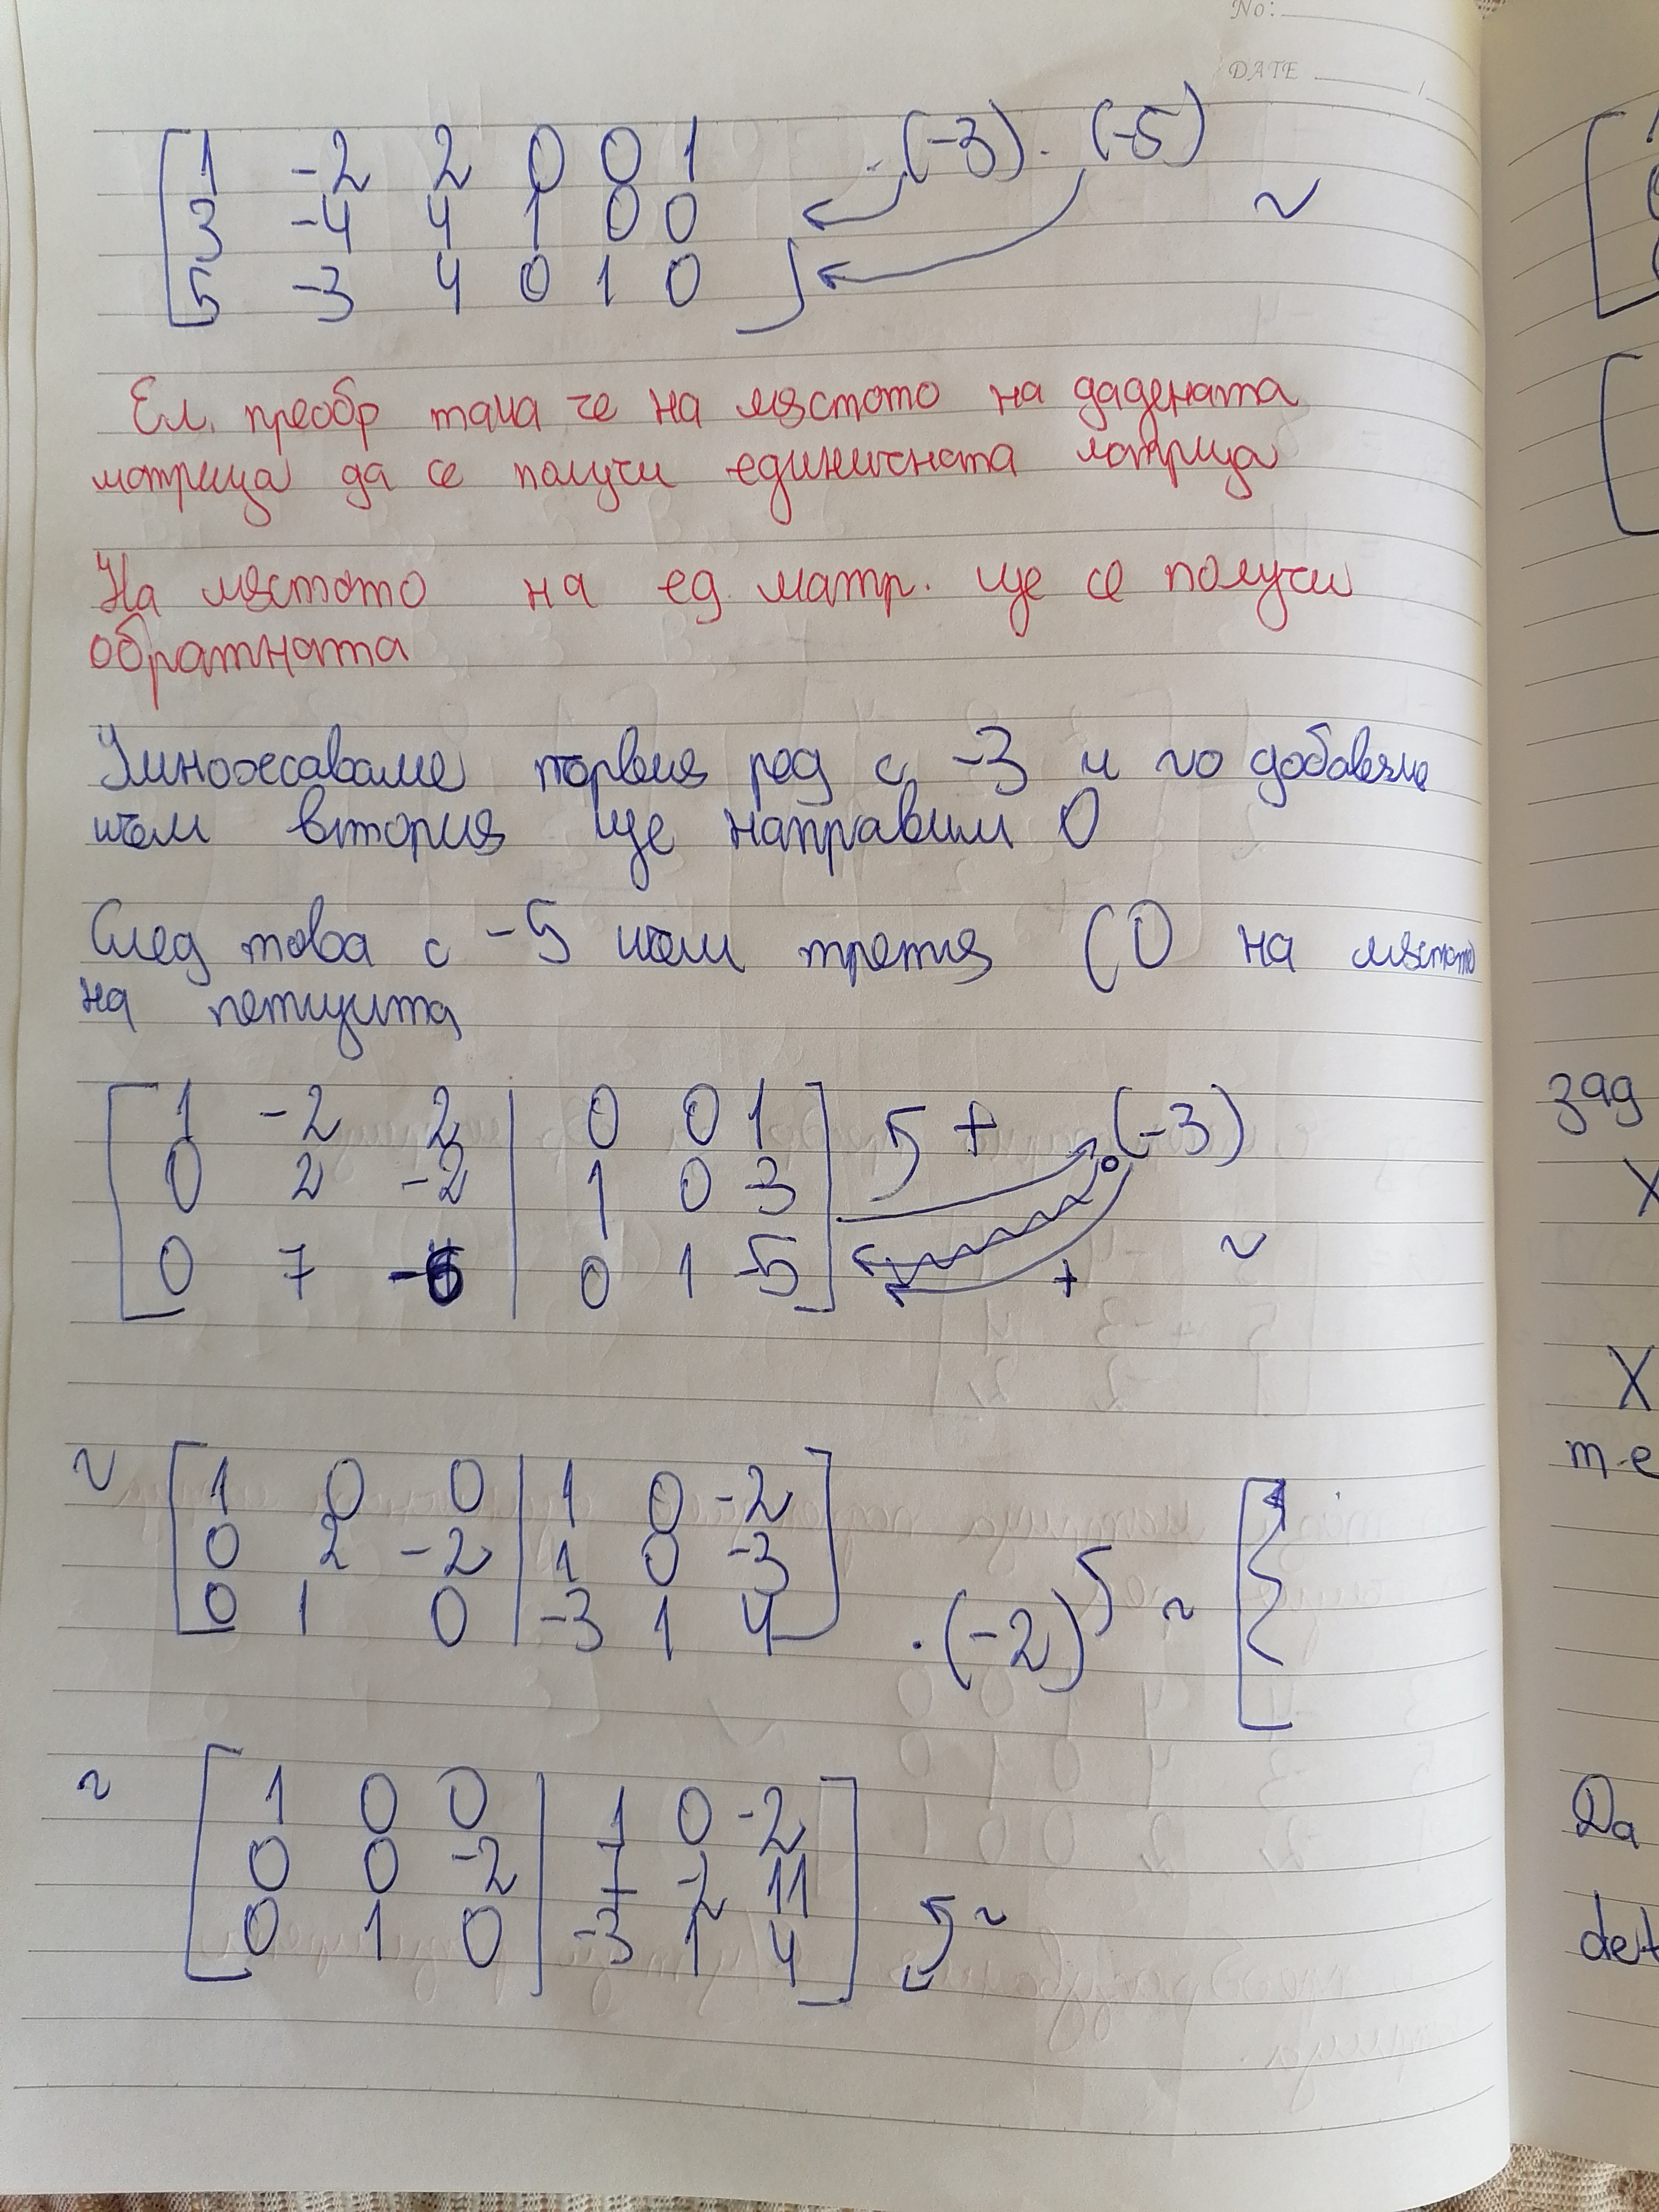 No:
DATE
1 -2 2 0 0 1 .(-3). (-5)
3 -4 4 1 0 0 ~
5 -3 4 0 1 0
Ел. преобр така че на мястото на дадената
матрица да се получи единичната матрица
На мястото на ед. матр. ще се получи
обратната
Умножаваме първия ред с -3 и го добавяме
към втория ще направим 0
След това с -5 към третия (0 на мястото
на петицита
1 -2 2 | 0 0 1 + (-3)
0 2 -2 | 1 0 -3
0 7 -6 | 0 1 -5 + ~
~ 1 0 0 | 1 0 -2
0 2 -2 | 1 0 -3
0 1 0 | -3 1 4 .(-2) ~
~ 1 0 0 | 1 0 -2
0 0 -2 | 7 -2 11
0 1 0 | -3 1 4 ~
зад
X
X
т.е
Da
det